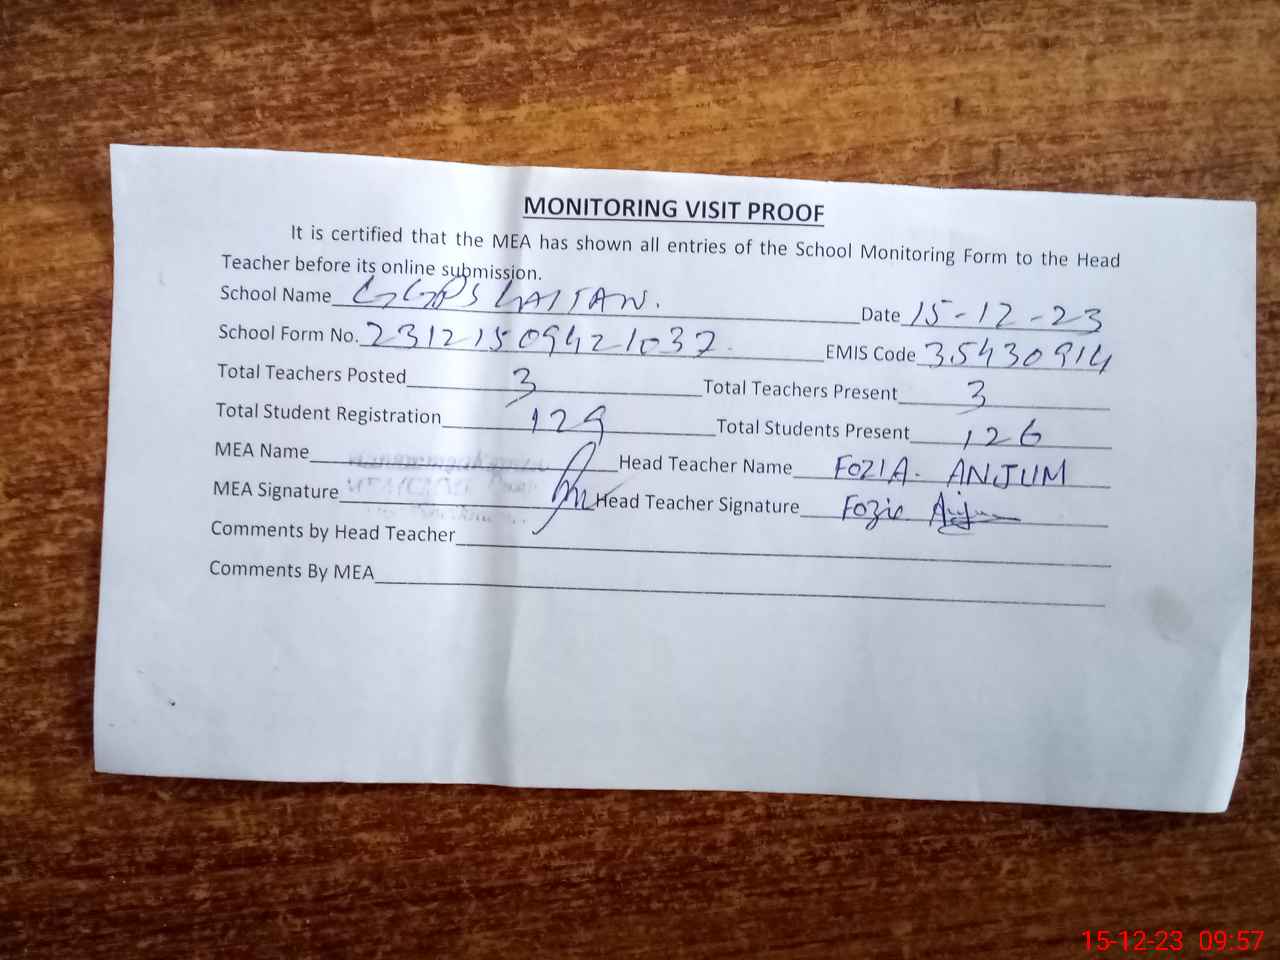 MONITORING VISIT PROOF
It is certified that the MEA has shown all entries of the School Monitoring Form to the Head
Teacher before its online submission.
School Name GGPS Date 15-12-23
School Form No. 23121509421037. EMIS Code 35430914
Total Teachers Posted 3 Total Teachers Present 3
Total Student Registration 129 Total Students Present 126
MEA Name Head Teacher Name FOZIA. ANJUM
MEA Signature Head Teacher Signature Fozia Anjum
Comments by Head Teacher
Comments By MEA
15-12-23 09:57